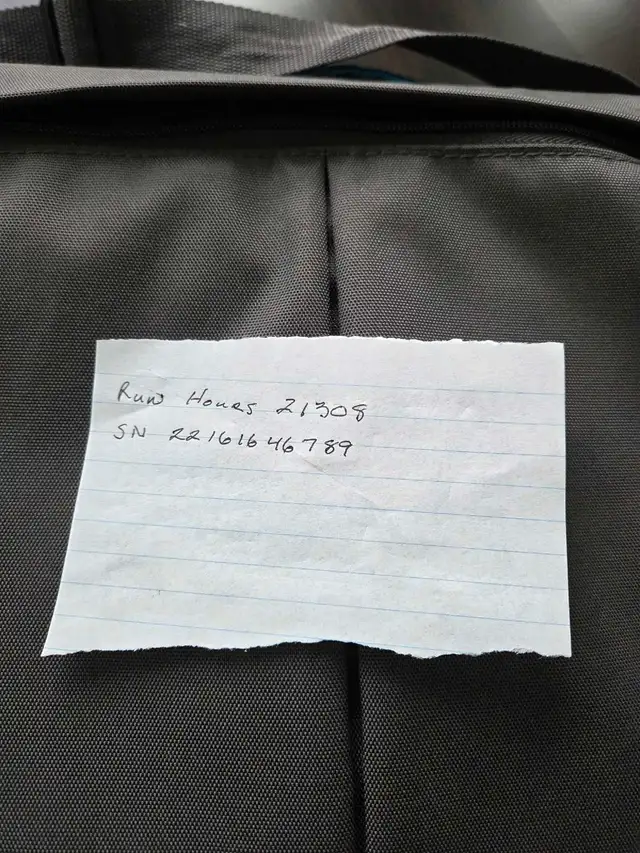 Run Hours 21308
SN 22161646789